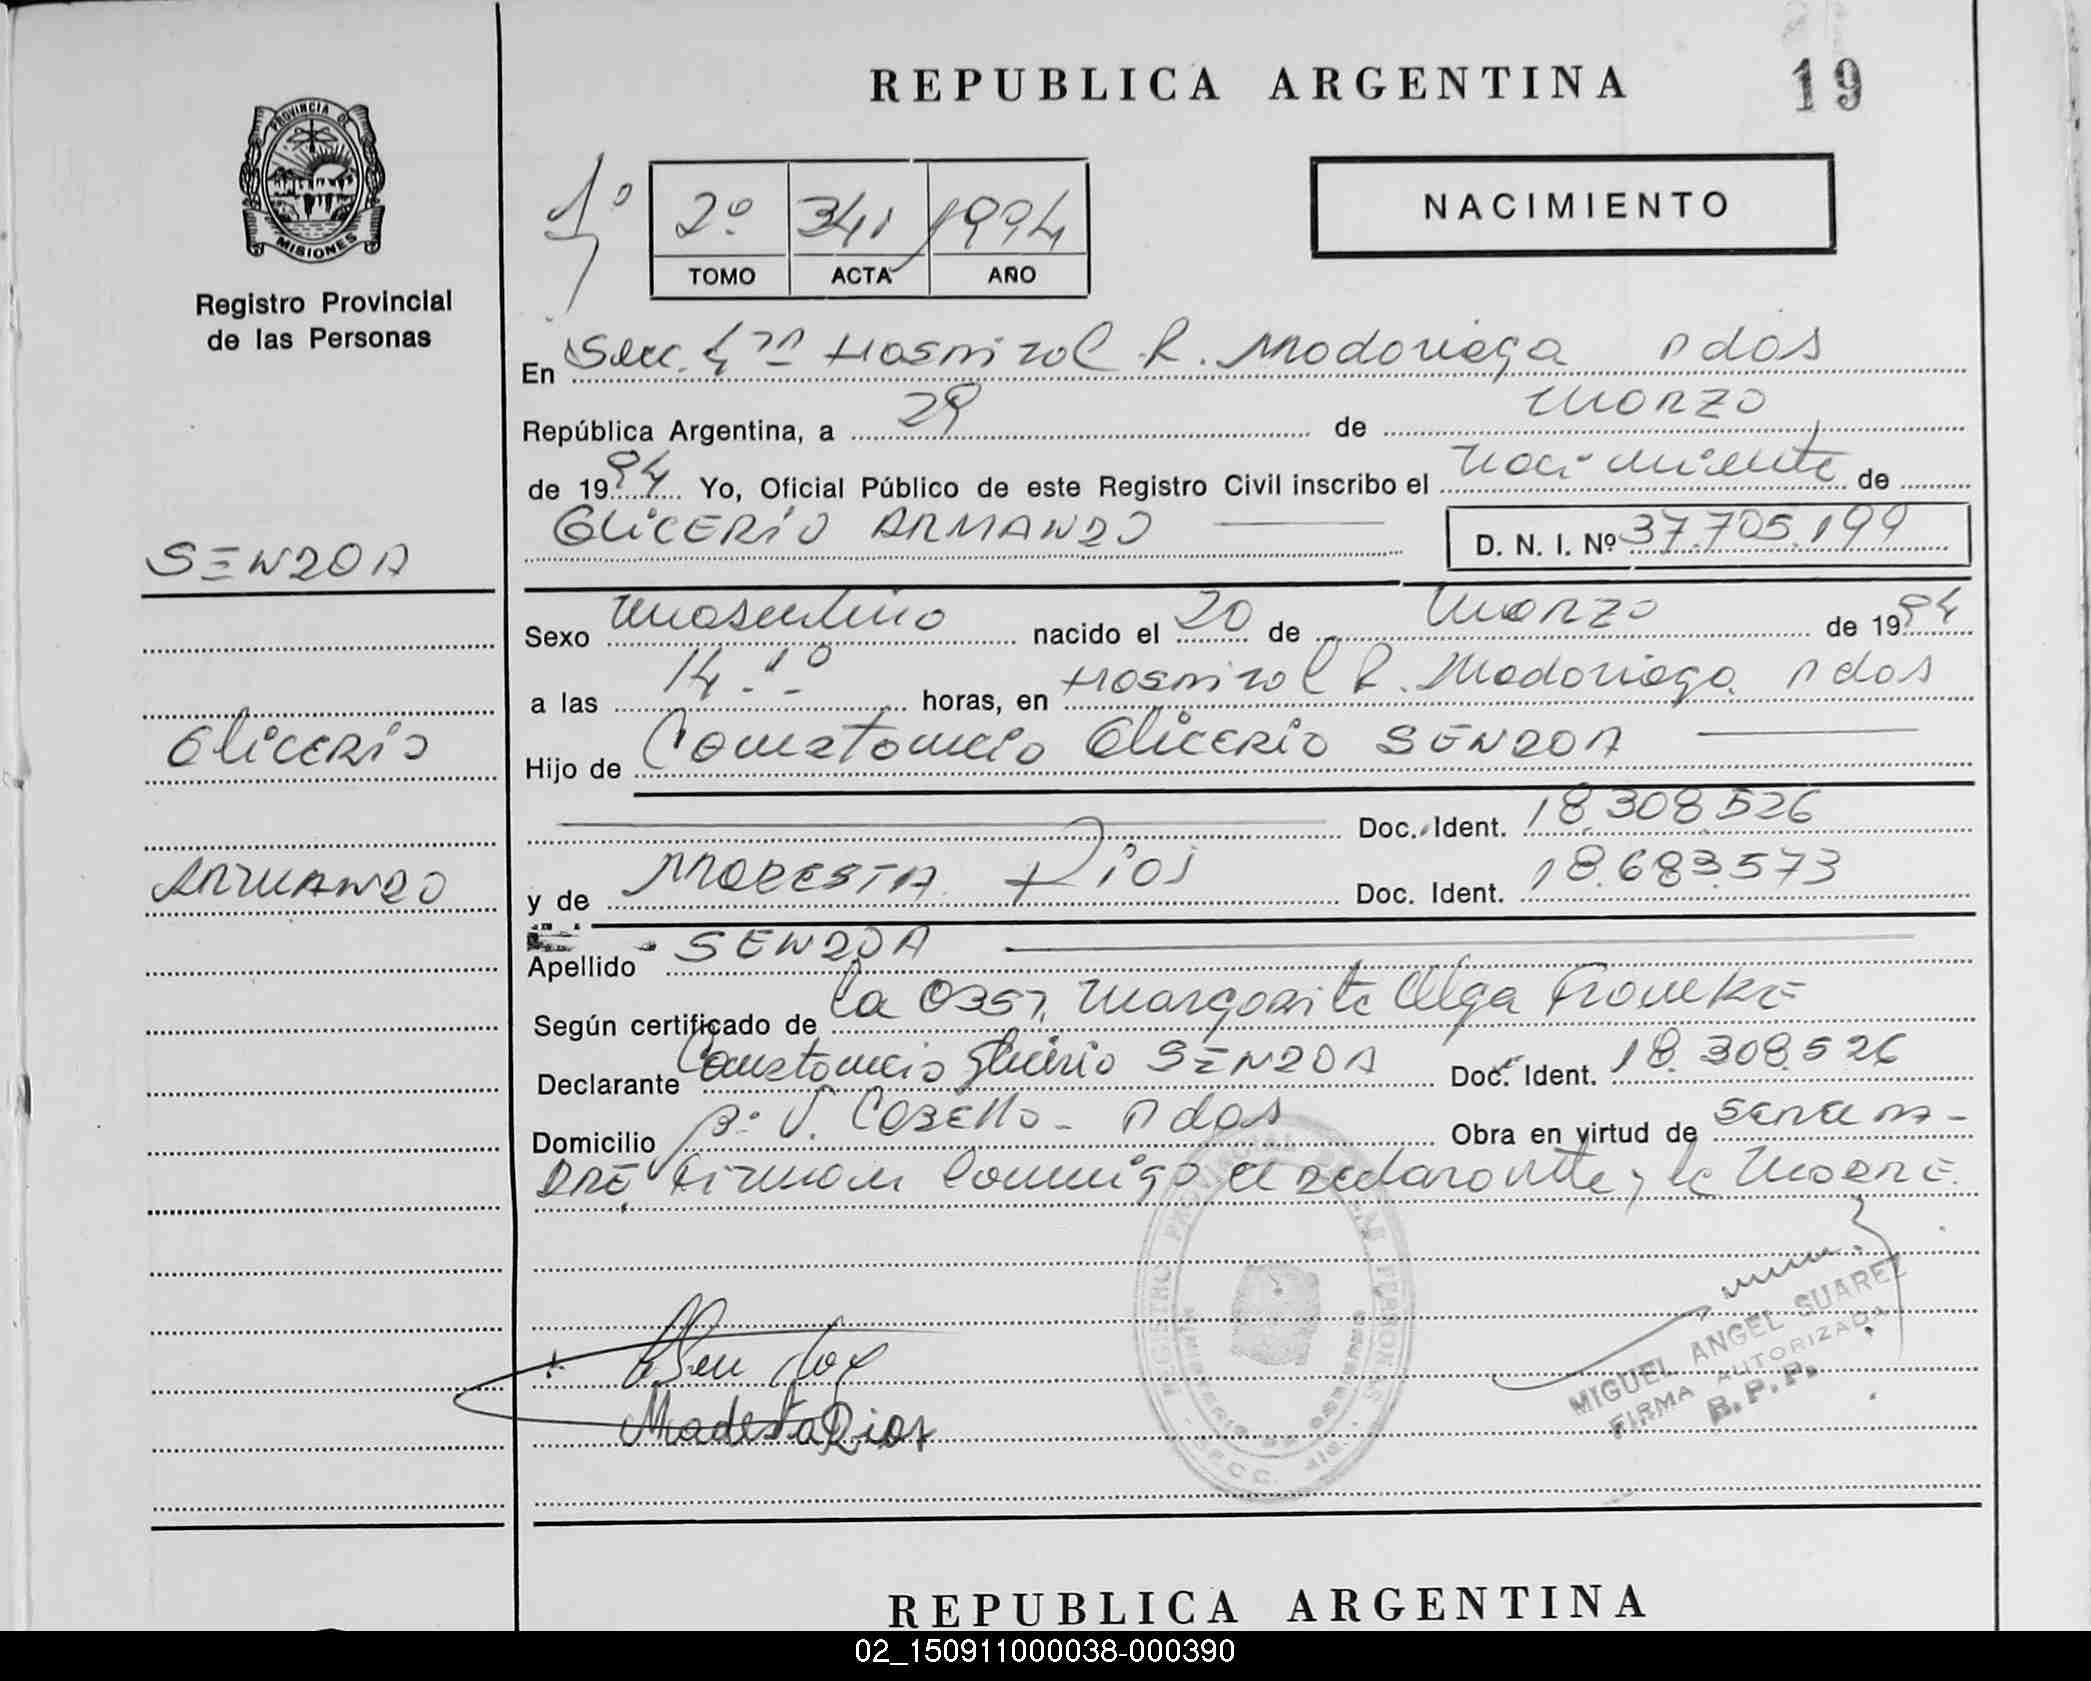 REPUBLICA ARGENTINA
19
PROVINCIA DE
MISIONES
Registro Provincial
de las Personas
1º
2º 341 1994
TOMO ACTA AÑO
NACIMIENTO
En Secc. 4ta Hospital R. Madariaga Pdas
República Argentina, a 29 de Marzo
de 1994 Yo, Oficial Público de este Registro Civil inscribo el nacimiento de
GLICERIO ARMANDO D. N. I. Nº 37.705.199
SENDOA
Sexo Masculino nacido el 20 de Marzo de 1994
a las 14.10 horas, en Hospital R. Madariaga Pdas
Glicerio
Hijo de Constancio Glicerio SENDOA
Doc. Ident. 18.308.526
Armando
y de MODESTA Rios Doc. Ident. 18.683.573
Apellido SENDOA
Según certificado de la Obst. Margarita Olga Franke
Declarante Constancio Glicerio SENDOA Doc. Ident. 18.308.526
Domicilio Bº V. Cabello - Pdas Obra en virtud de ser el pa-
dre Firman conmigo el declarante y la Madre.
REGISTRO PROVINCIAL DE LAS PERSONAS
MINISTERIO DE GOBIERNO
MIGUEL ANGEL SUAREZ
FIRMA AUTORIZADA
R. P. P.
Modesta Rios
REPUBLICA ARGENTINA
02_150911000038-000390